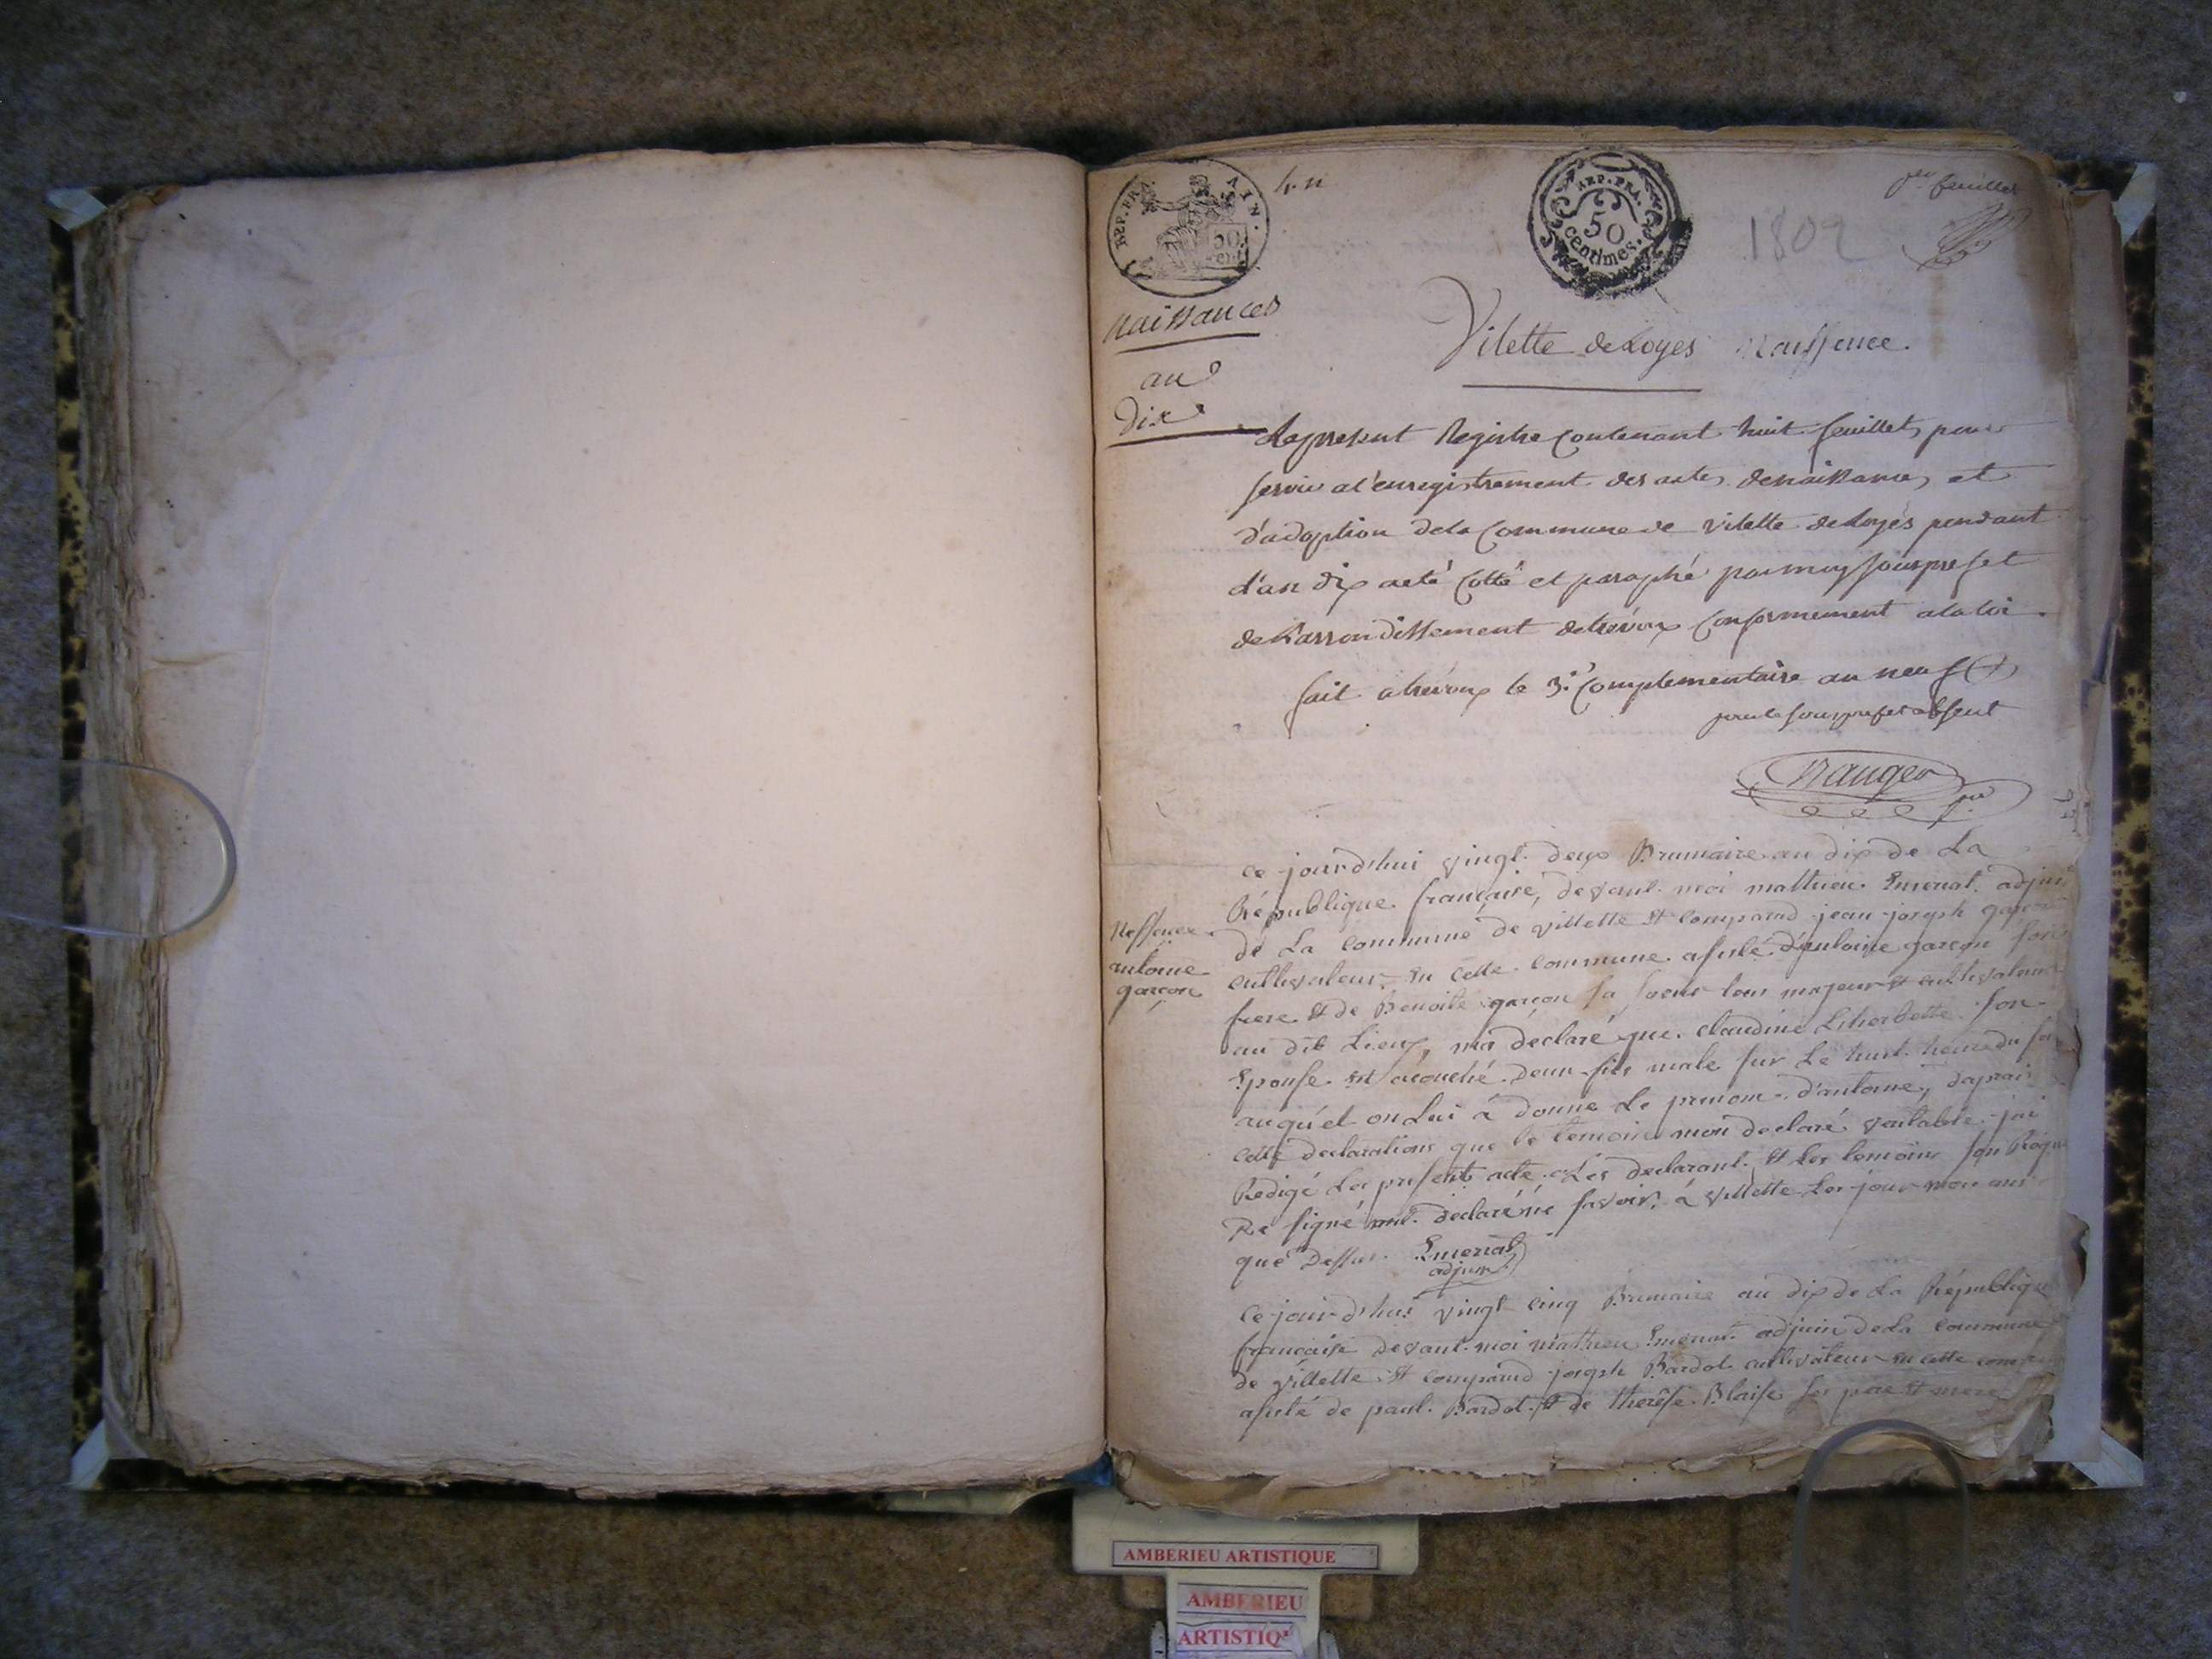 REP. FRA. AIN.
50 cent
4. n
REP. FRA.
50
centimes.
1802
1er feuillet
Naissances
an
Dix
Vilette de Loyes Naissence.
Le present Registre Contenant huit feuillets pour
servir a l'enregistrement des actes de naissances et
d'adoption de la Commune de Vilette de Loyes pendant
l'an dix a eté Cotté et paraphé par moy sousprefet
de l'arrondissement de trevoux Conformement a la loi
fait a trevoux le 3.e Complementaire an neuf
pour le sousprefet absent
Nauger
Nessence
antoine
garcon
ce jourd'hui vingt deux Brumaire an dix de La
République française, devant moi mathieu Emenat adjuin
de La commune de villette et comparud jean joseph garcon
cultivateur en cette commune asisté d'antoine garcon son
frere et de Benoite garcon sa soeur tous majeurs et cultivateur
au dit Lieux, ma déclaré que claudine son
Epouse est acouché deun fils male sur Le huit heure du
auquel on Lui à donné Le prenom d'antoine, daprais
cette declarations que le temoins mon declaré veritable jai
Redigé Le présent acte Les declarant et Les temoins son Requi
De signé ont declaré ne savoir, à villette Les jour moi an
que Dessus. Emenat
adjuin
ce jourd'hui vingt cinq Brumaire an dix de La République
française devant moi mathieu Emenat adjuin de La commune
de villette et comparud joseph Bardot cultivateur en cette commune
asisté de paul Bardot et de therése Blaise ses pere et mere
AMBERIEU ARTISTIQUE
AMBERIEU
ARTISTIQ